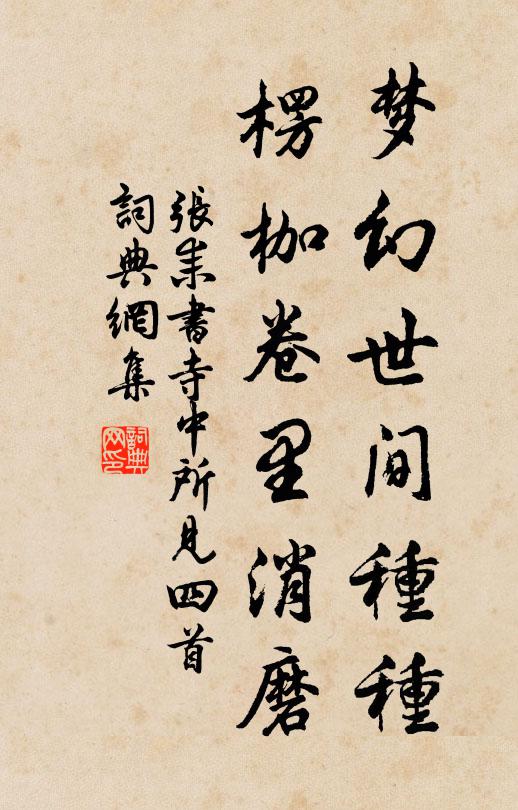 梦幻世间種種
楞枷卷里消磨
張耒書寺中所見四首
詞典網集
詞典网印